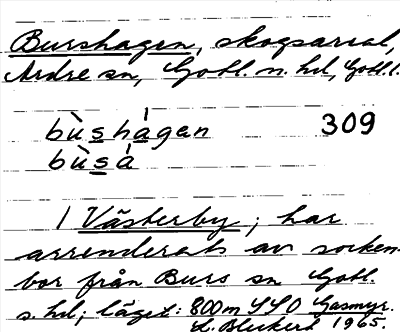 Burshagen, skogsareal,
Ardre sn, Gotl. n. hd, Gotl. l.
bùshágan 309
bùsá
I Västerby; har
arrenderats av socken-
bor från Burs sn Gotl.
s. hd; läget: 800 m SSO Gasmyr.
L. Bleckert 1965.